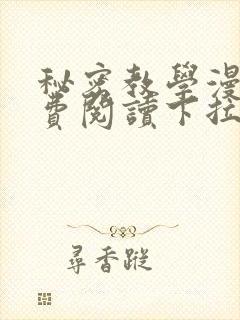 秘密教學漫
費閱讀下拉
尋香蹤